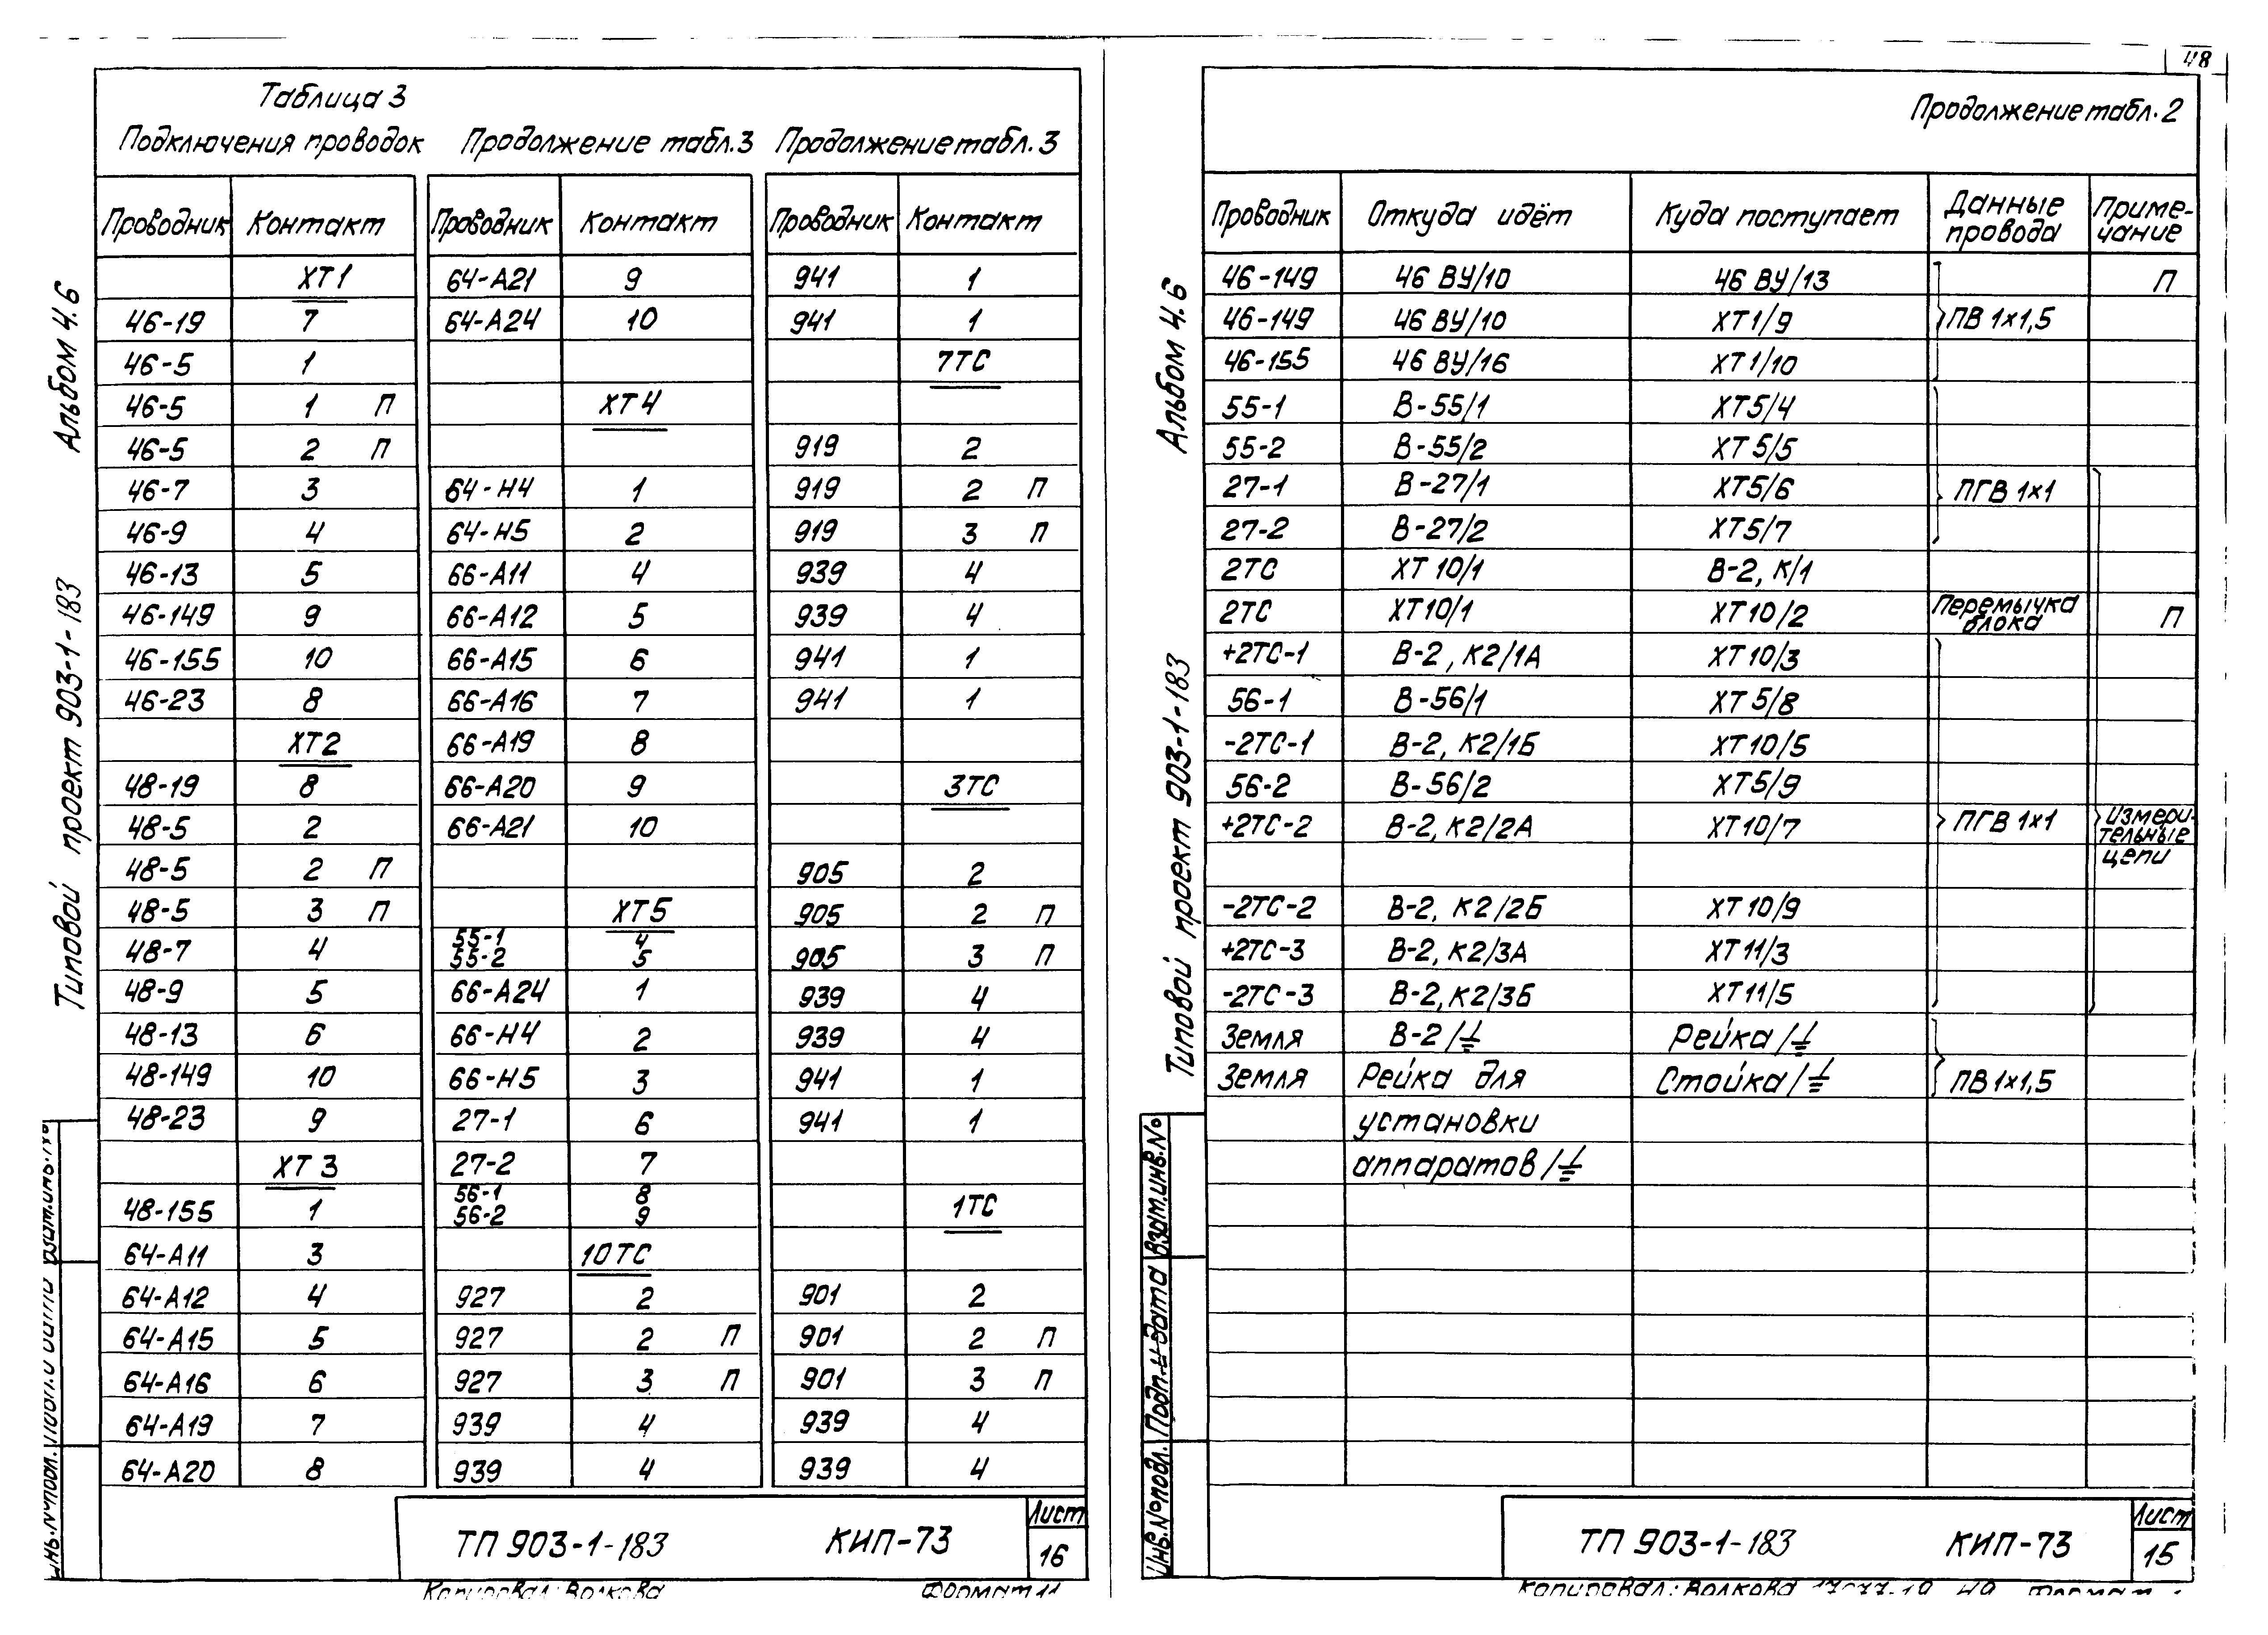 Таблица 3
Подключения проводок
Продолжение табл.3
Продолжение табл.3
Проводник Контакт
ХТ1
46-19 7
46-5 1
46-5 1 П
46-5 2 П
46-7 3
46-9 4
46-13 5
46-149 9
46-155 10
46-23 8
ХТ2
48-19 8
48-5 2
48-5 2 П
48-5 3 П
48-7 4
48-9 5
48-13 6
48-149 10
48-23 9
ХТ3
48-155 1
64-А11 3
64-А12 4
64-А15 5
64-А16 6
64-А19 7
64-А20 8
Проводник Контакт
64-А21 9
64-А24 10
ХТ4
64-Н4 1
64-Н5 2
66-А11 4
66-А12 5
66-А15 6
66-А16 7
66-А19 8
66-А20 9
66-А21 10
ХТ5
55-1 4
55-2 5
66-А24 1
66-Н4 2
66-Н5 3
27-1 6
27-2 7
56-1 8
56-2 9
10ТС
927 2
927 2 П
927 3 П
939 4
939 4
Проводник Контакт
941 1
941 1
7ТС
919 2
919 2 П
919 3 П
939 4
939 4
941 1
941 1
3ТС
905 2
905 2 П
905 3 П
939 4
939 4
941 1
941 1
1ТС
901 2
901 2 П
901 3 П
939 4
939 4
Альбом 4.6
Типовой проект 903-1-183
ТП 903-1-183 КИП-73
Лист
16
Копировал: Волкова Формат 11
48
Продолжение табл.2
Проводник Откуда идёт Куда поступает Данные провода Приме-чание
46-149 46 ВУ/10 46 ВУ/13 П
46-149 46 ВУ/10 ХТ1/9 ПВ 1х1,5
46-155 46 ВУ/16 ХТ1/10
55-1 В-55/1 ХТ5/4
55-2 В-55/2 ХТ5/5
27-1 В-27/1 ХТ5/6 ПГВ 1х1
27-2 В-27/2 ХТ5/7
2ТС ХТ10/1 В-2, К/1
2ТС ХТ10/1 ХТ10/2 Перемычка блока П
+2ТС-1 В-2, К2/1А ХТ10/3
56-1 В-56/1 ХТ5/8
-2ТС-1 В-2, К2/1Б ХТ10/5
56-2 В-56/2 ХТ5/9
+2ТС-2 В-2, К2/2А ХТ10/7 ПГВ 1х1 Измери-
тельные
цепи
-2ТС-2 В-2, К2/2Б ХТ10/9
+2ТС-3 В-2, К2/3А ХТ11/3
-2ТС-3 В-2, К2/3Б ХТ11/5
Земля В-2/⏚ Рейка/⏚
Земля Рейка для Стойка/⏚ ПВ 1х1,5
установки
аппаратов/⏚
Альбом 4.6
Типовой проект 903-1-183
Инв.№подл. Подп. и дата Взам.инв.№
ТП 903-1-183 КИП-73
Лист
15
Копировал: Волкова